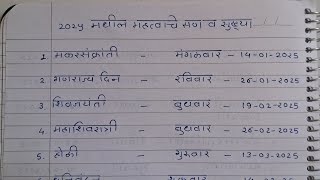 2025 मधील महत्वाचे सण व सुट्ट्या
1. मकरसंक्रांती - मंगळवार - 14-01-2025
2. गणराज्य दिन - रविवार - 26-01-2025
3. शिवजयंती - बुधवार - 19-02-2025
4. महाशिवरात्री - बुधवार - 26-02-2025
5. होळी - गुरुवार - 13-03-2025